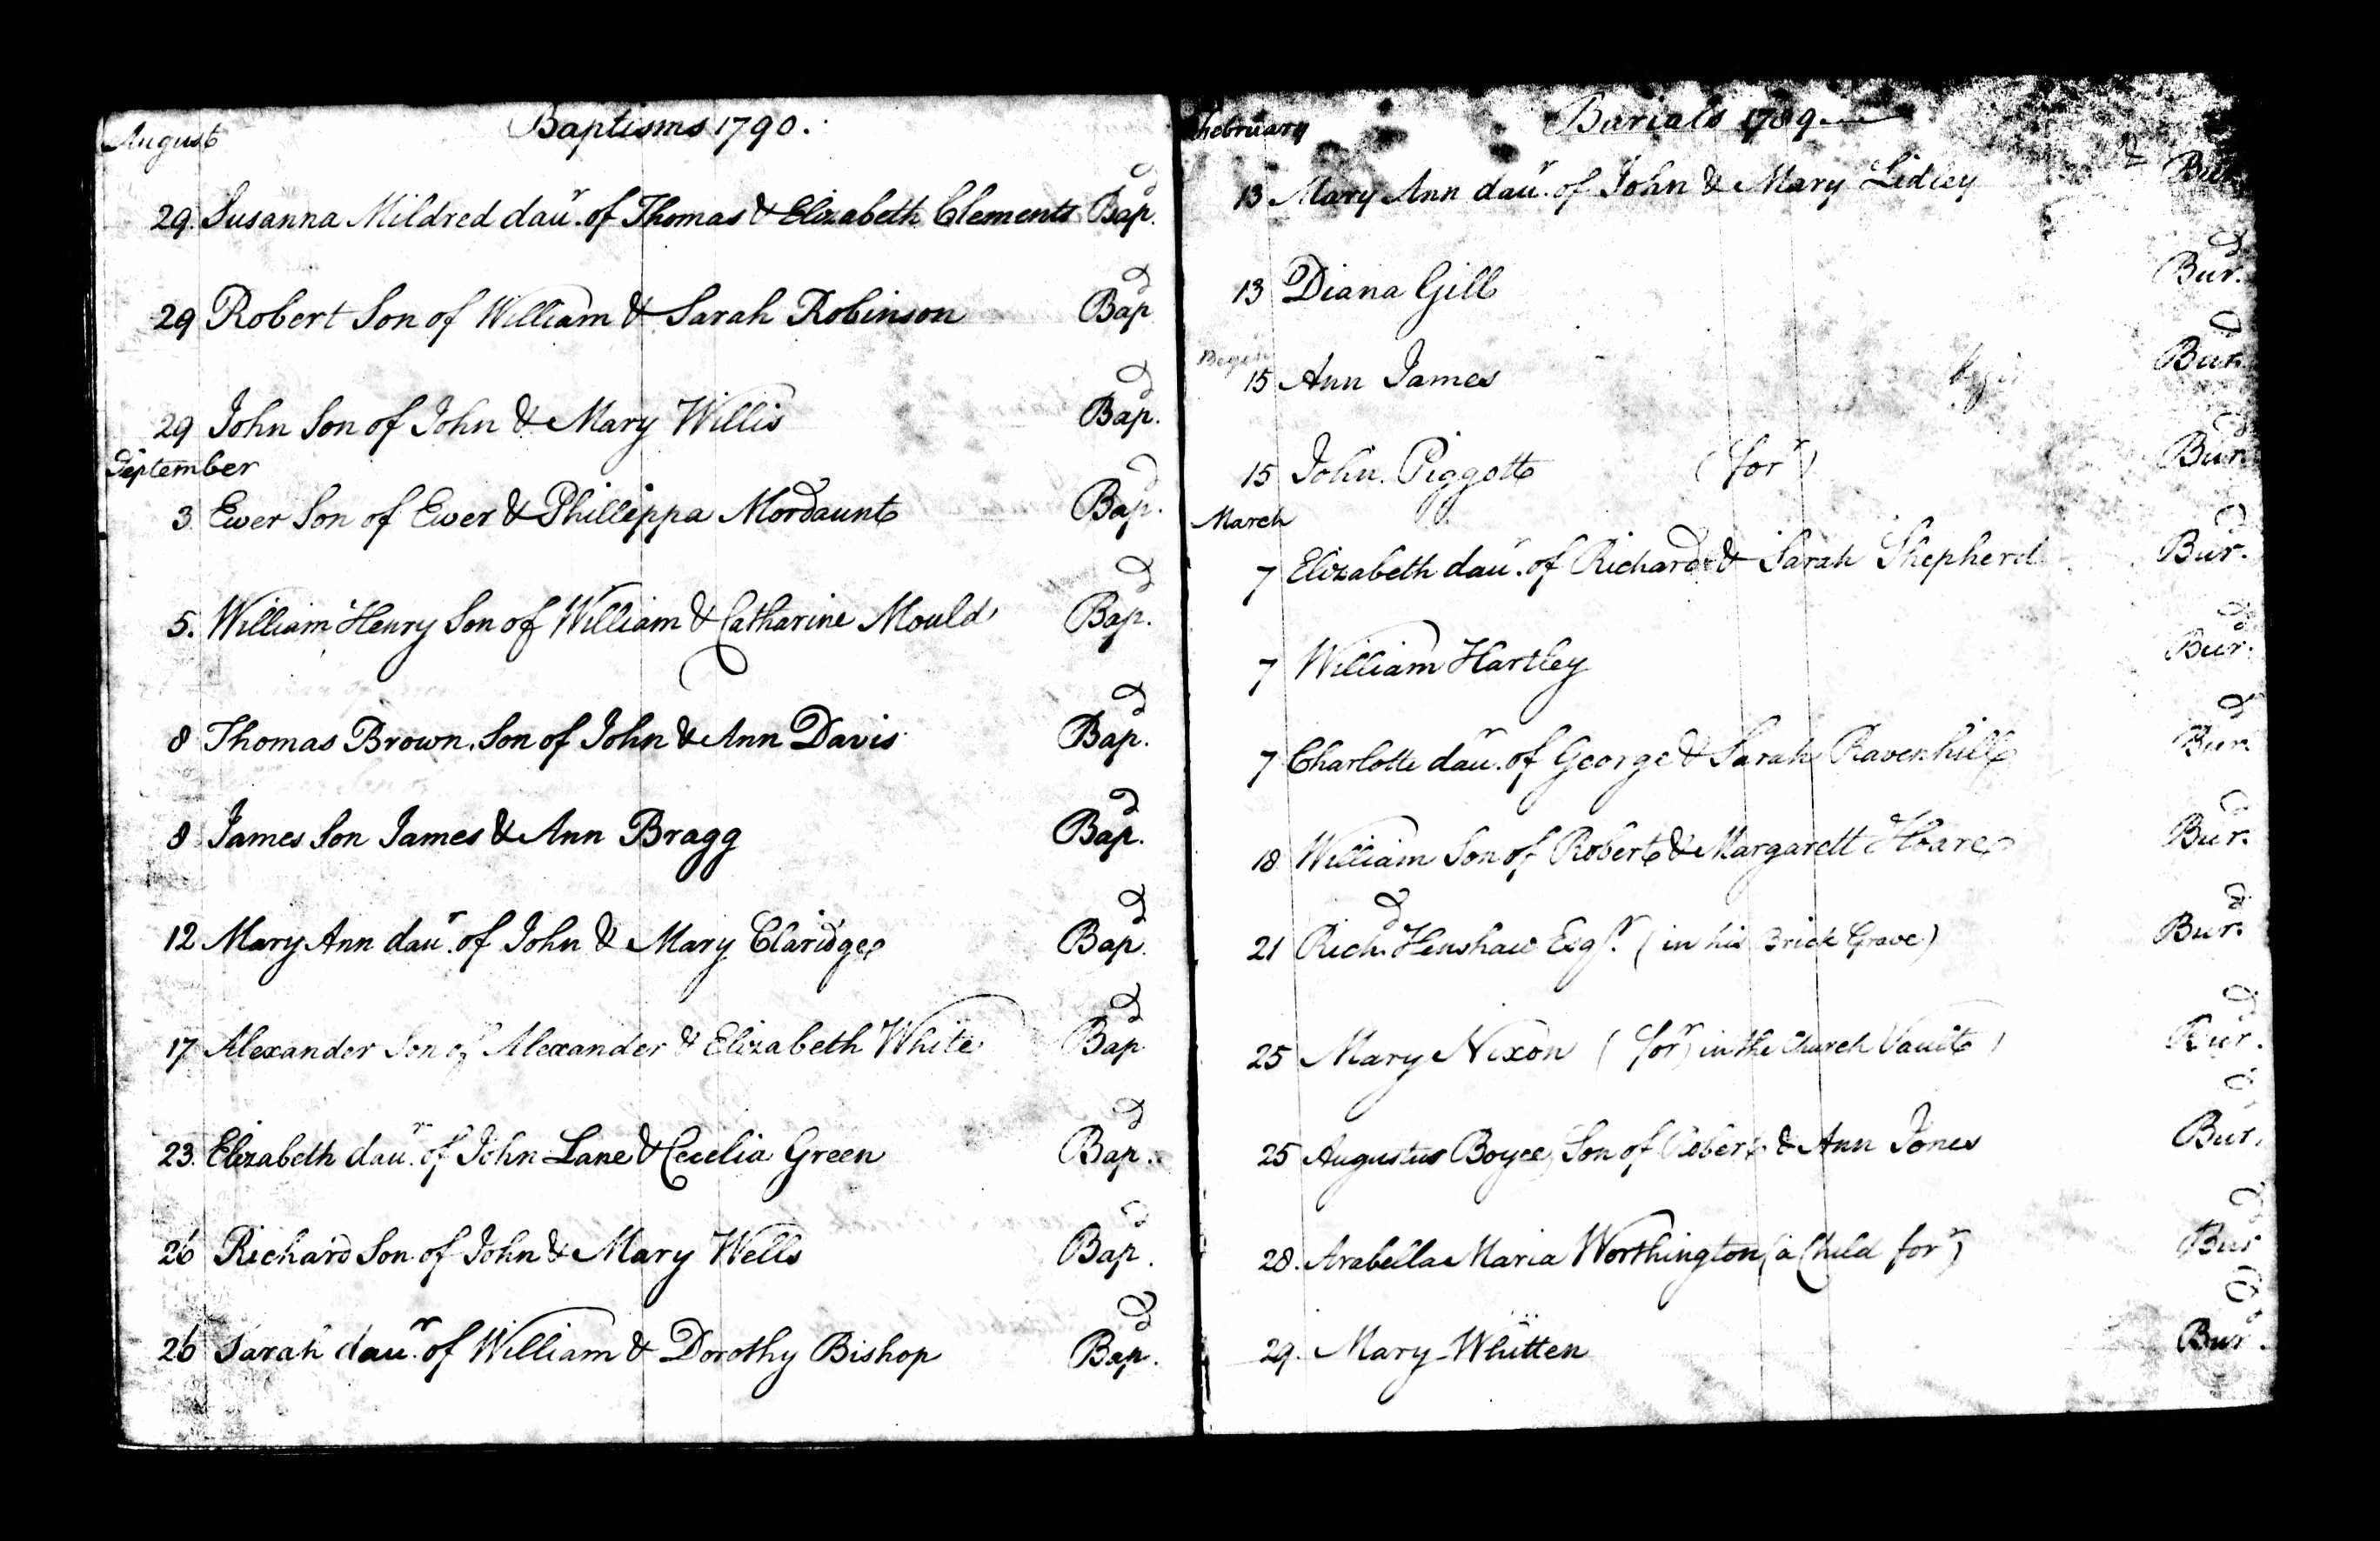 Baptisms 1790.
August
29. Susanna Mildred daur. of Thomas & Elizabeth Clements Bapd.
29 Robert Son of William & Sarah Robinson Bapd
29 John Son of John & Mary Willis Bapd.
September
3 Ewer Son of Ewer & Phillippa Mordaunt Bapd.
5. William Henry Son of William & Catharine Mould Bapd.
8 Thomas Brown Son of John & Ann Davis Bapd.
8 James Son James & Ann Bragg Bapd.
12 Mary Ann daur. of John & Mary Claridge Bapd.
17 Alexander Son of Alexander & Elizabeth White Bapd
23. Elizabeth daur. of John Lane & Cecelia Green Bapd.
26 Richard Son of John & Mary Wells Bapd.
26 Sarah daur. of William & Dorothy Bishop Bapd.
Burials 1789
February
13 Mary Ann daur. of John & Mary Lidley Burd
13 Diana Gill Burd.
15 Ann James Burd.
15 John Piggott (forr) Burd.
March
7 Elizabeth daur. of Richard & Sarah Shepherd Burd.
7 William Hartley Burd.
7 Charlotte daur. of George & Sarah Ravenhill Burd.
18 William Son of Robert & Margarett Hoare Burd.
21 Richd. Henshaw Esqr. (in his Brick Grave) Burd.
25 Mary Nixon (forr) in the Church Vault) Burd.
25 Augustus Boyce Son of Robert & Ann Jones Burd.
28. Arabella Maria Worthington (a Child forr) Burd
29. Mary Whitten Burd.